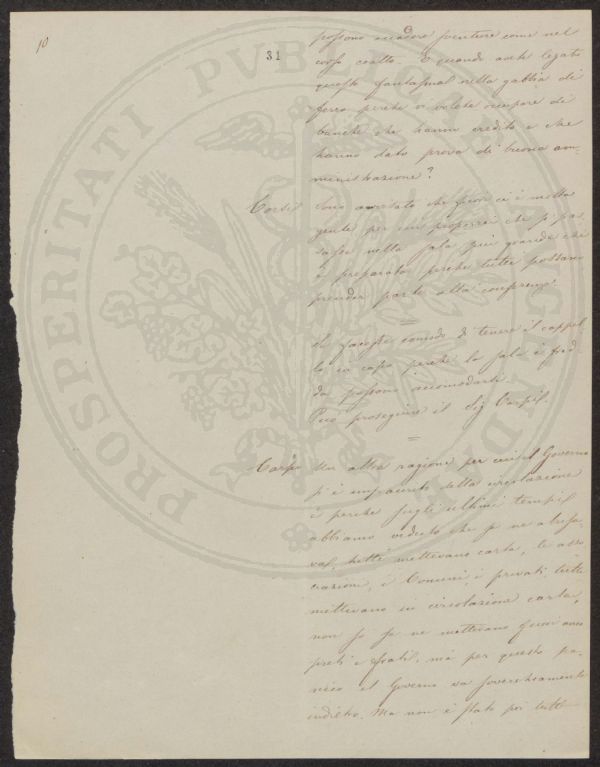 10
31
possono accadere sventure come nel
corso coatto. E quando avete legato
questo fantasma nella gabbia di
ferro perchè volete occupare di
banche che hanno credito e che
hanno dato prova di buona am-
ministrazione?
Corsi Sono avvertato che fuori ce n'è molta
gente per cui proporrei che si pas-
sasse nella sala più grande che
è preparata perchè tutti possano
prender parte alla conferenza.
Se facesse comodo di tenere il cappel-
lo in capo perchè la sala è fred-
da possono accomodarsi.
Può proseguire il Sig Carpi.
Carpi Un altra ragione per cui il Governo
si è della circolazione
è perchè sugli ultimi tempi
abbiamo veduto che se ne abusa-
va, tutti mettevano carta, le asso-
ciazioni, i Comuni, i privati tutti
mettevano in circolazione carta,
non so se ne mettevano fuori anco
preti e frati, ma per questo pa-
nico il Governo va soverchiamente
indietro. Ma non è stato poi tutto
PROSPERITATI PVBLICAE